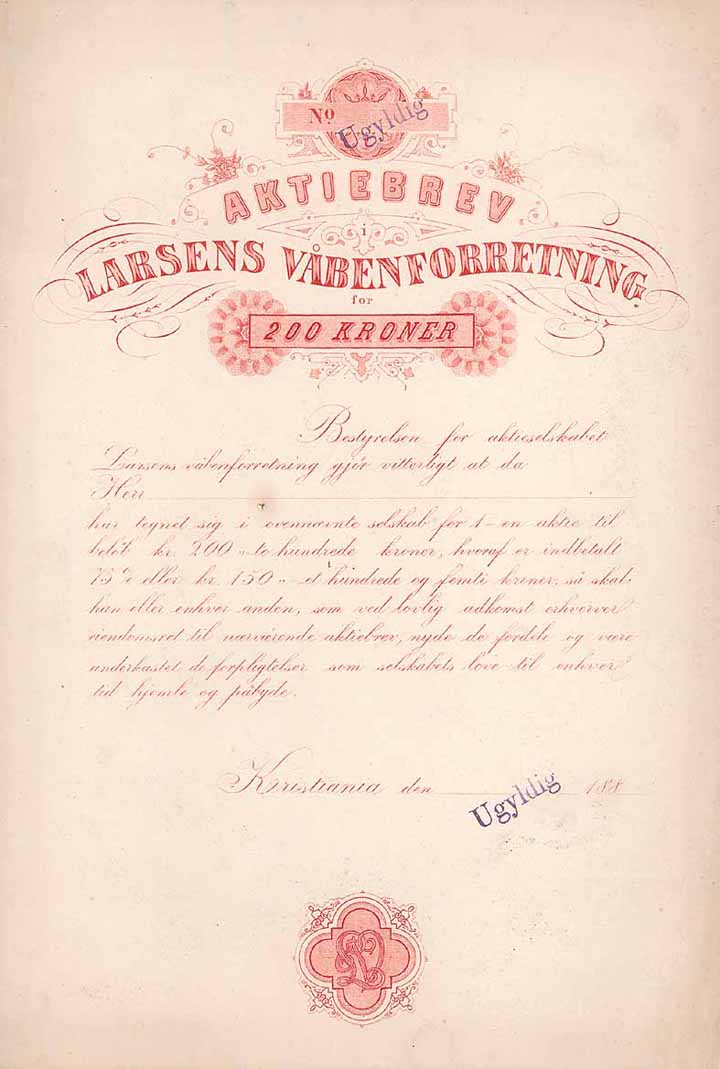 No
Ugyldig
AKTIEBREV
i
LARSENS VÅBENFORRETNING
for
200 KRONER
Bestyrelsen for aktieselskabet
Larsens våbenforretning gjør vitterligt at da
Herr
har tegnet sig i ovennævnte selskab for 1 – en aktie til
beløb kr. 200 „ to hundrede kroner, hvoraf er indbetalt
75% eller kr. 150 „ et hundrede og femti kroner, så skal
han eller enhver anden, som ved lovlig adkomst erhverver
eiendomsret til nærværende aktiebrev, nyde de fordele og være
underkastet de forpligtelser som selskabets love til enhver
tid hjemle og påbyde.
Kristiania den 188
Ugyldig